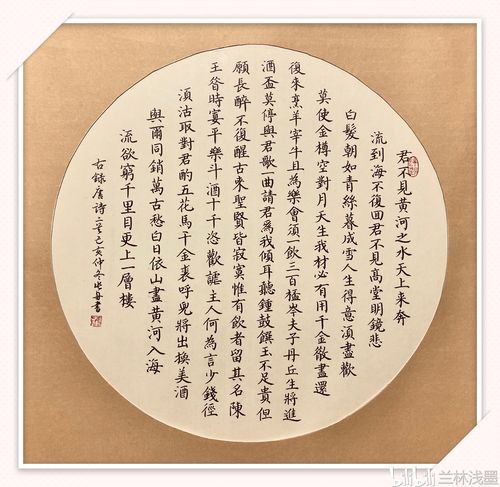 君不見黃河之水天上来奔
流到海不復回君不見高堂明鏡悲
白髮朝如青絲暮成雪人生得意須盡歡
莫使金樽空對月天生我材必有用千金散盡還
後来烹羊宰牛且為樂會須一飲三百盃岑夫子丹丘生將進
酒盃莫停與君歌一曲請君為我傾耳聽鍾鼓饌玉不足貴但
願長醉不復醒古来聖賢皆寂寞惟有飲者留其名陳
王昔時宴平樂斗酒十千恣歡謔主人何為言少錢徑
須沽取對君酌五花馬千金裘呼兒將出換美酒
與爾同銷萬古愁白日依山盡黃河入海
流欲窮千里目更上一層樓
古錄唐詩二首己亥仲冬書
bilibili 兰林浅墨